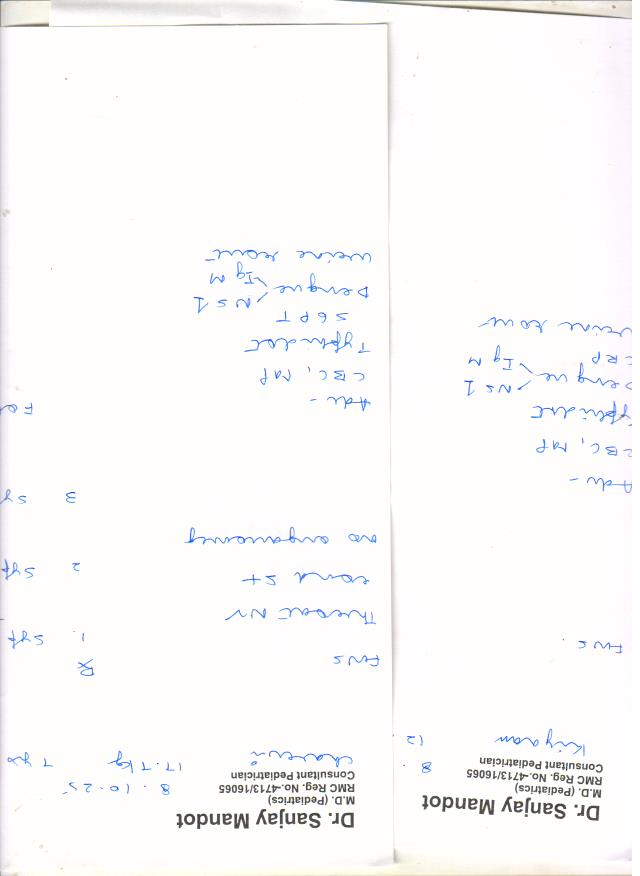 Dr. Sanjay Mandot
M.D. (Pediatrics)
RMC Reg. No.-4713/16065
Consultant Pediatrician
8.
12
Adv -
CBC, MP
Typhidot
Dengue NS1
IgM
CRP
Dr. Sanjay Mandot
M.D. (Pediatrics)
RMC Reg. No.-4713/16065
Consultant Pediatrician
8.10.25
17.7 kg 7 yrs
℞
1. Syp
Throat
2 Syp
no organomegaly
3 Sy
Adv -
CBC, MP
Typhidot
SGPT
Dengue NS1
IgM
urine rout